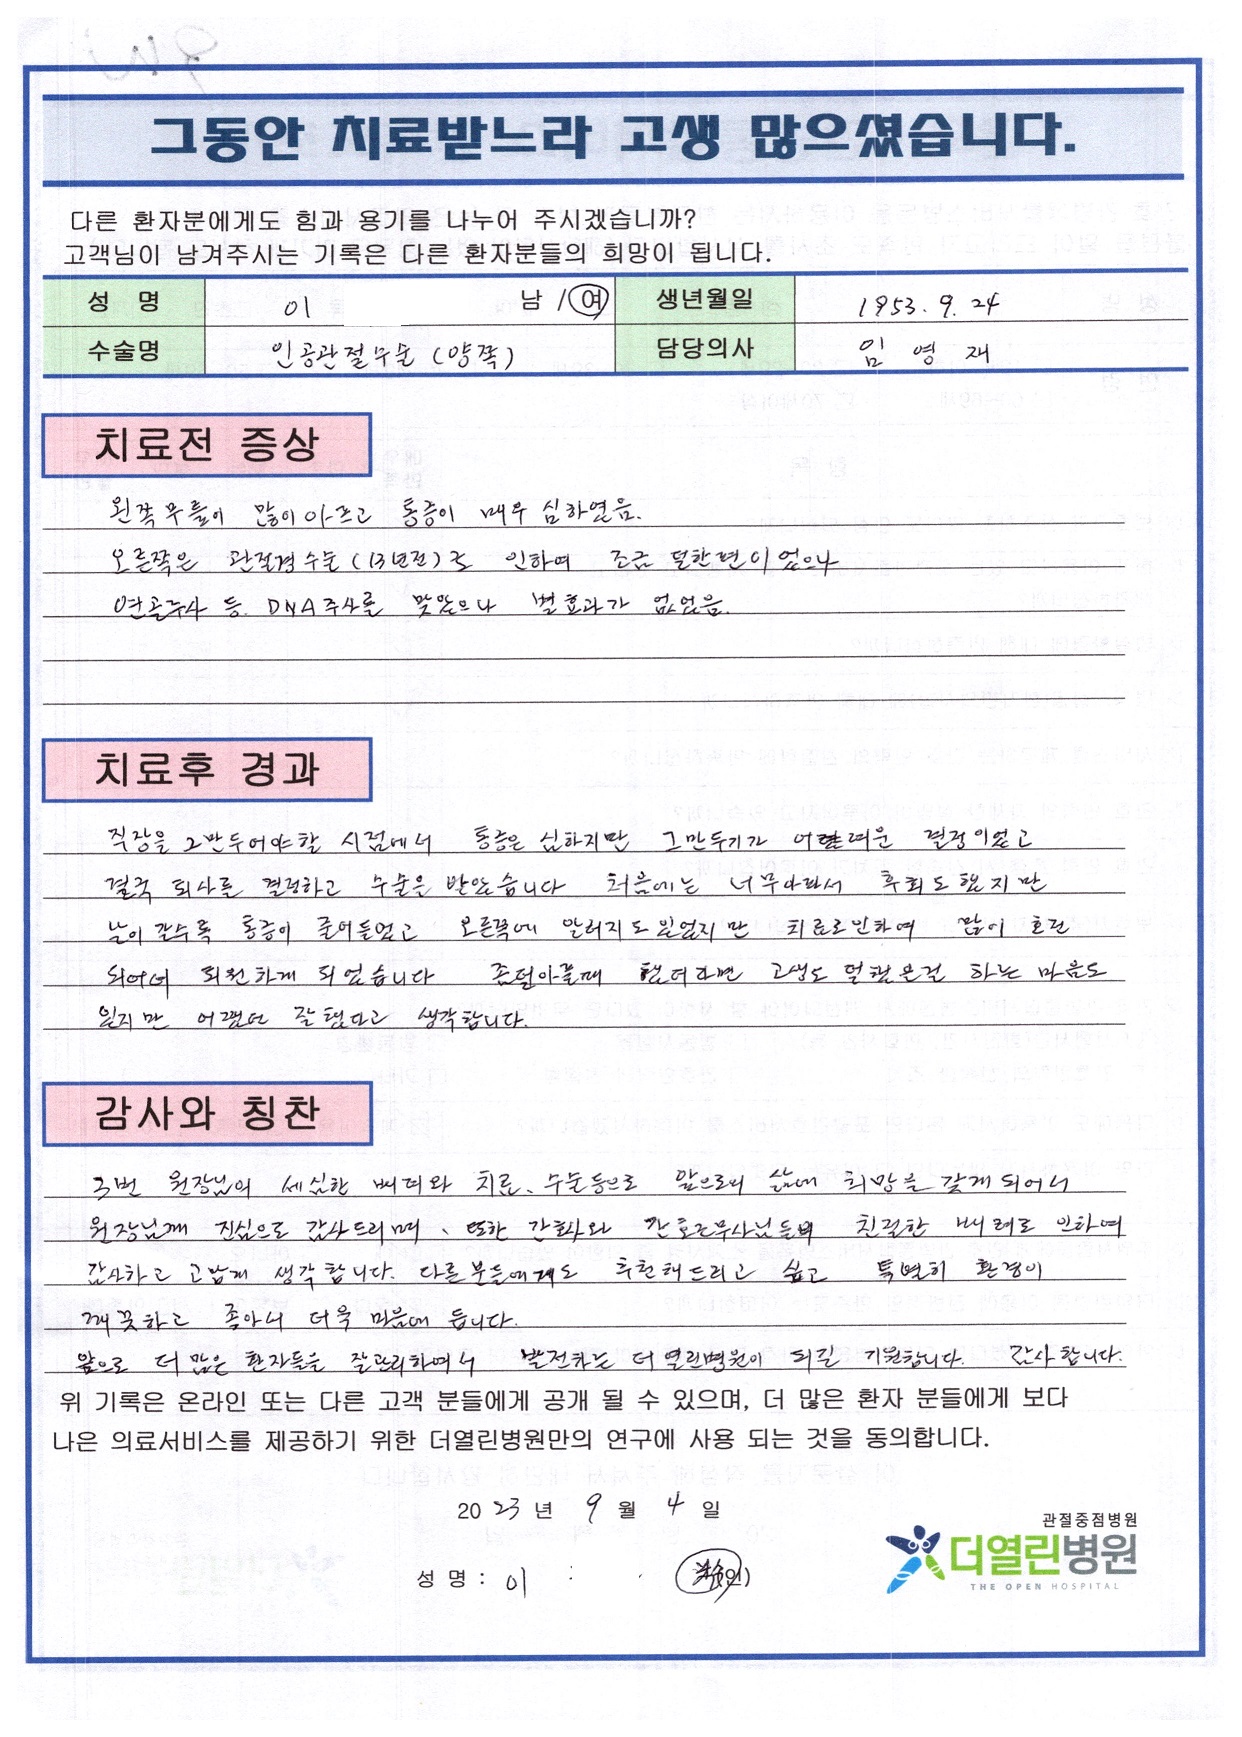 그동안 치료받느라 고생 많으셨습니다.
다른 환자분에게도 힘과 용기를 나누어 주시겠습니까?
고객님이 남겨주시는 기록은 다른 환자분들의 희망이 됩니다.
성 명 이 남 / 여 생년월일 1953. 9. 24
수술명 인공관절수술 (양쪽) 담당의사 임 영 재
치료전 증상
왼쪽 무릎이 많이 아프고 통증이 매우 심하였음.
오른쪽은 관절경 수술 (13년전)로 인하여 조금 덜한편이었으나
연골주사 등. DNA 주사를 맞았으나 별 효과가 없었음.
치료후 경과
직장을 그만두어야 할 시점에서 통증은 심하지만 그만두기가 어려운 결정이었고
결국 퇴사를 결정하고 수술은 받았습니다 처음에는 너무아파서 후회도 했지만
날이 갈수록 통증이 줄어들었고 오른쪽에 알러지도 있었지만 치료로인하여 많이 호전
되어서 퇴원하게 되었습니다 좀덜아플때 했더라면 고생도 덜했을걸 하는 마음도
있지만 어쨌던 잘했다고 생각합니다.
감사와 칭찬
3번 원장님의 세심한 배려와 치료、수술등으로 앞으로의 삶에 희망을 갖게되어서
원장님께 진심으로 감사드리며、또한 간호사와 간호조무사님들의 친절한 배려로 인하여
감사하고 고맙게 생각합니다. 다른분들에게도 추천해드리고 싶고 특별히 환경이
깨끗하고 좋아서 더욱 마음에 듭니다.
앞으로 더 많은 환자들을 잘관리하여서 발전하는 더열린병원이 되길 기원합니다. 감사합니다.
위 기록은 온라인 또는 다른 고객 분들에게 공개 될 수 있으며, 더 많은 환자 분들에게 보다
나은 의료서비스를 제공하기 위한 더열린병원만의 연구에 사용 되는 것을 동의합니다.
2023년 9월 4일
성 명 : 이 (인)
관절중점병원
더열린병원
THE OPEN HOSPITAL